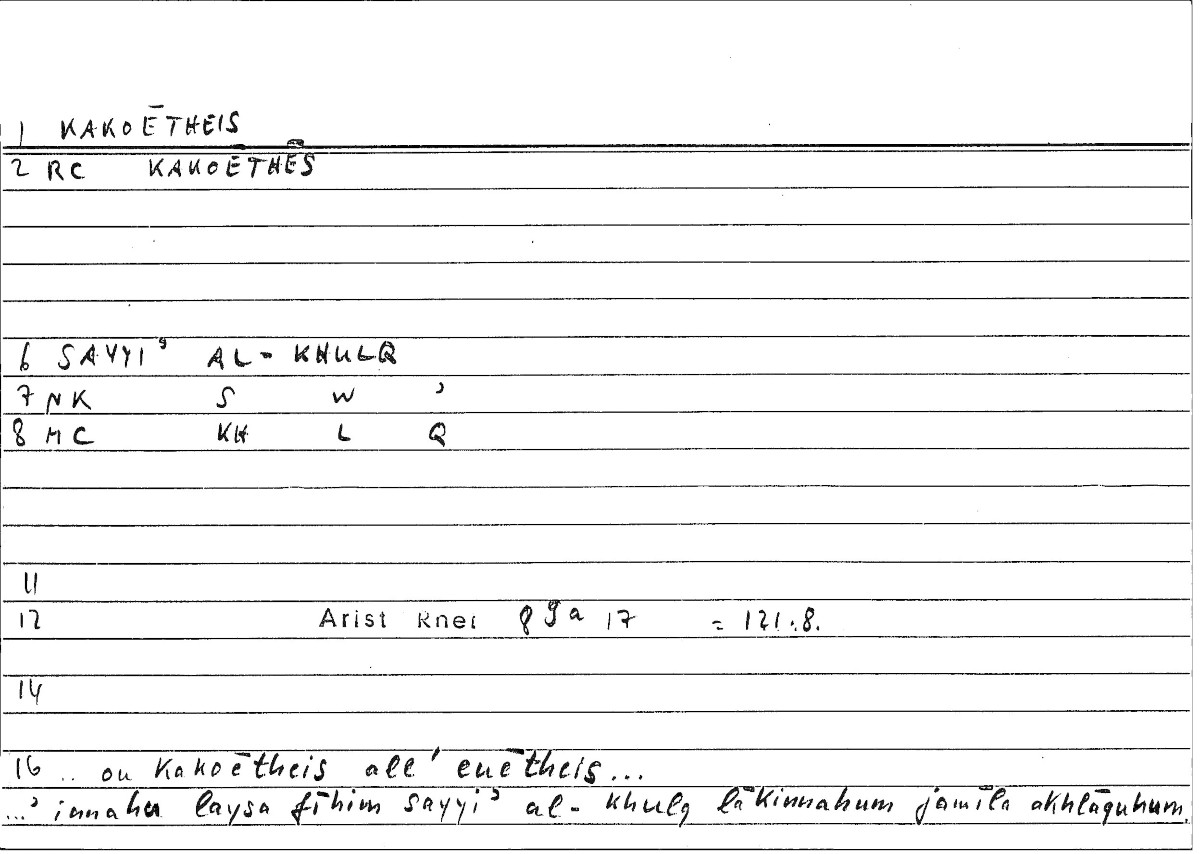 1 KAKOĒTHEIS
2 RC KAKOĒTHĒS
6 SAYYI' AL- KHULQ
7 NK S W '
8 MC KH L Q
11
12 Arist Rhet 89a 17 = 121.8.
14
16 .. ou kakoētheis all' euētheis...
...'innahu laysa fīhim sayyi' al- khulq lākinnahum jamīla akhlāquhum.